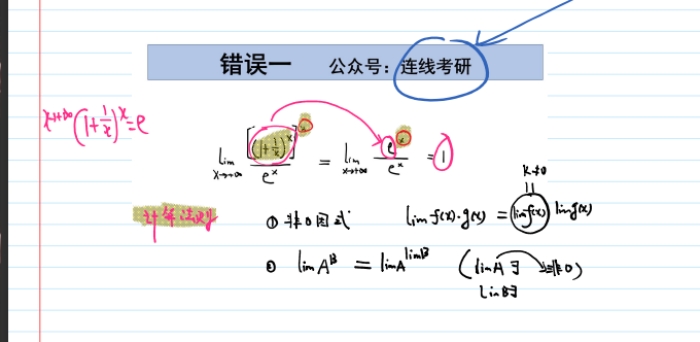 错误一 公众号：连线考研
x→+∞ (1+1/x)^x=e
lim x→+∞ [(1+1/x)^x]^x / e^x = lim x→+∞ e^x / e^x = 1
k≠0
计算法则 ① 非0因式 lim f(x)·g(x) = lim f(x) lim g(x)
② lim A^B = lim A^lim B (lim A ∃ 非0)
lim B ∃